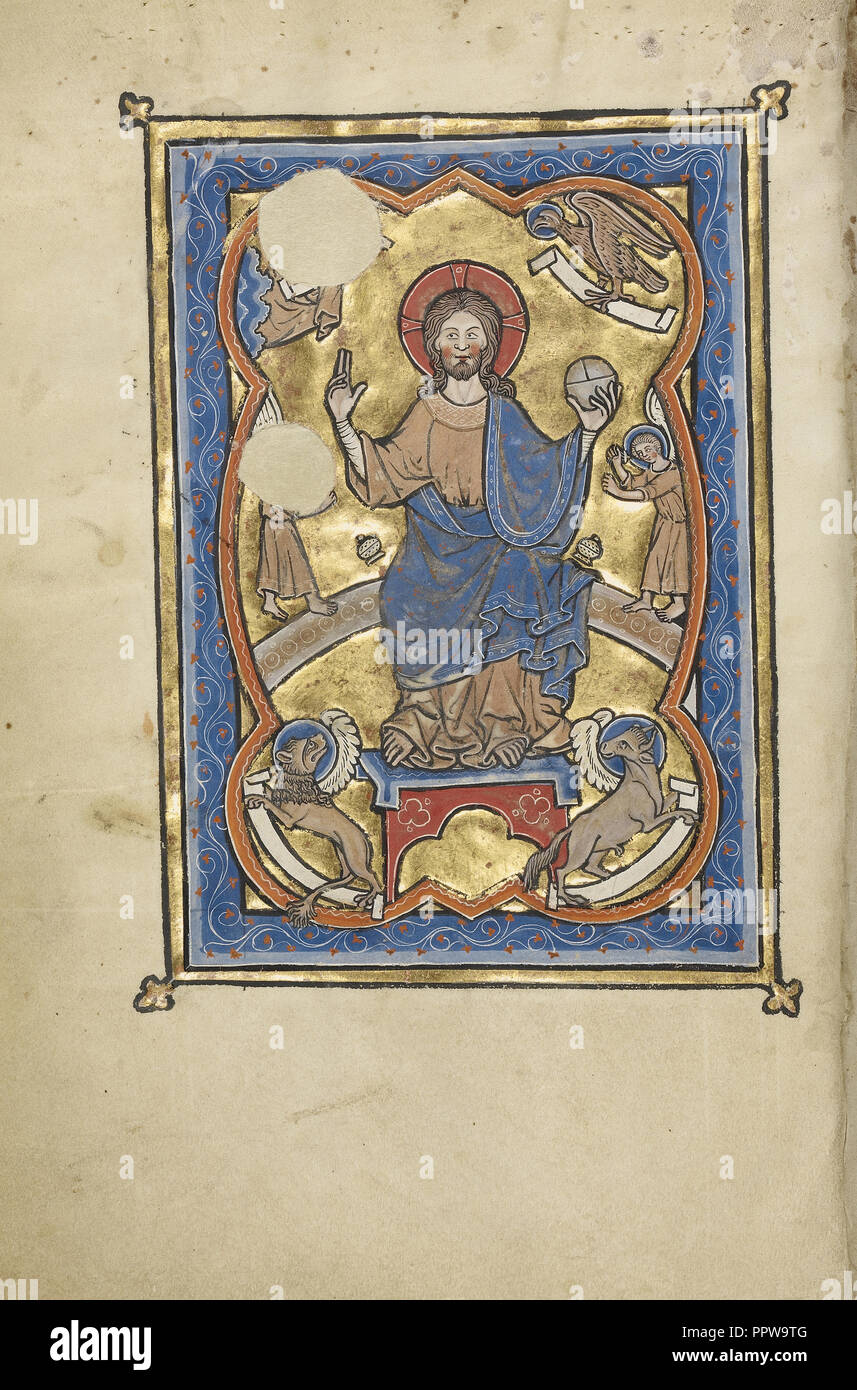 alamy
Image ID: PPW9TG
www.alamy.com